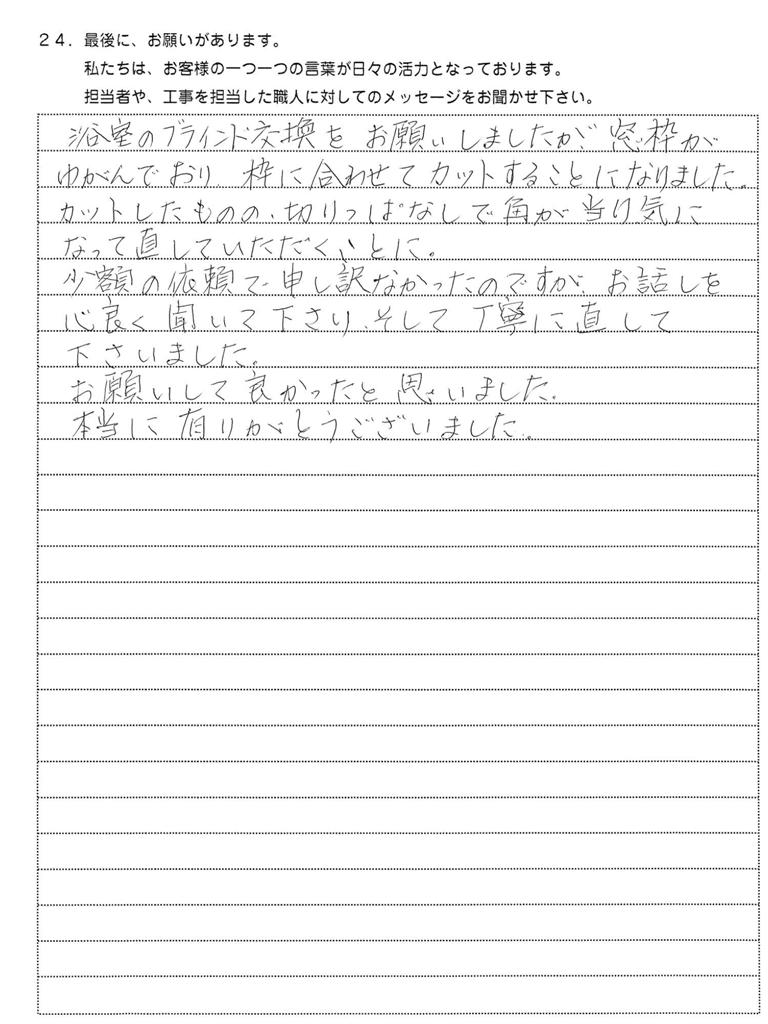 ２４．最後に、お願いがあります。
私たちは、お客様の一つ一つの言葉が日々の活力となっております。
担当者や、工事を担当した職人に対してのメッセージをお聞かせ下さい。
浴室のブラインド交換を お願いしましたが、窓枠が
ゆがんでおり 枠に合わせて カットすることになりました。
カットしたものの、切りっぱなしで角が当り気に
なって直していただくことに。
少額の依頼で申し訳なかったのですが、お話しを
心良く聞いて下さり、そして丁寧に直して
下さいました。
お願いして良かったと思いました。
本当に有りがとうございました。